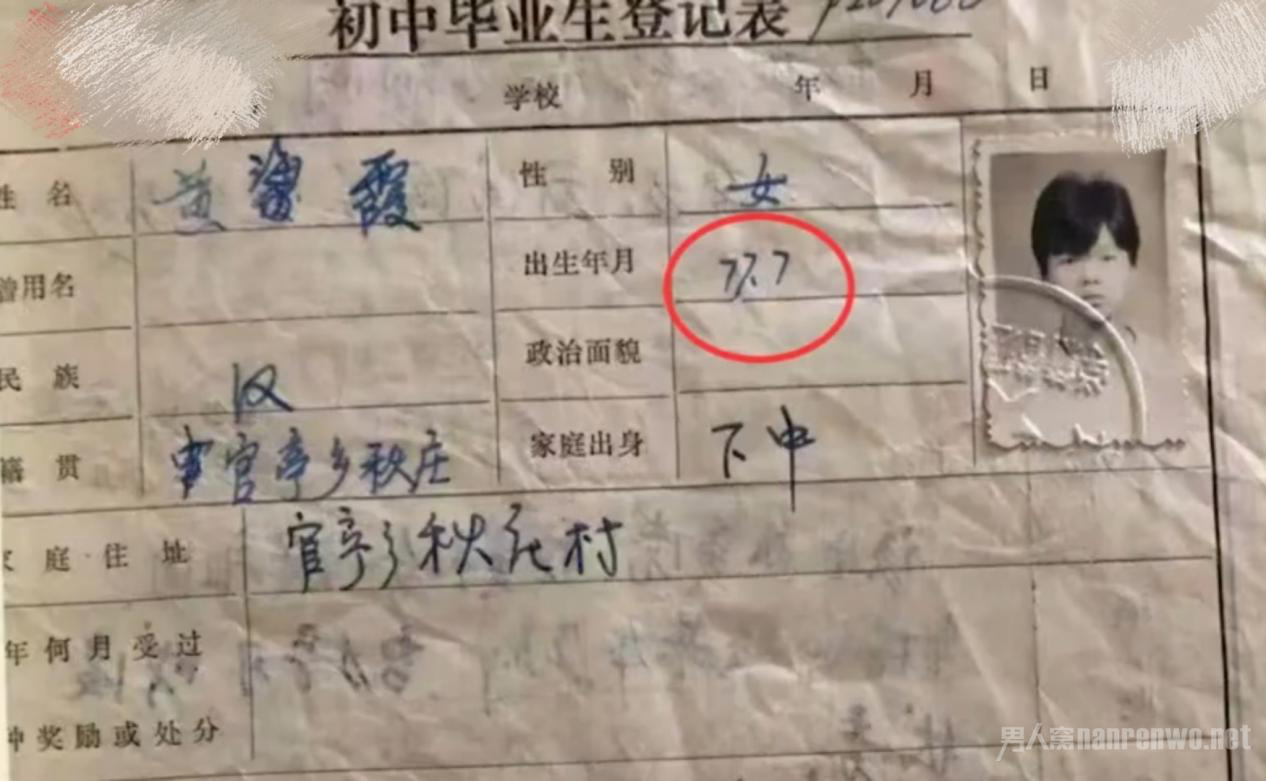 初中毕业生登记表
学校 年 月 日
姓 名 黄 霞 性 别 女
曾用名 出生年月
民 族 汉 政治面貌
籍 贯 官亭乡秋庄 家庭出身 下中
家 庭 住 址 官亭乡秋庄村
年何月受过
种奖励或处分
男人窝nanrenwo.net